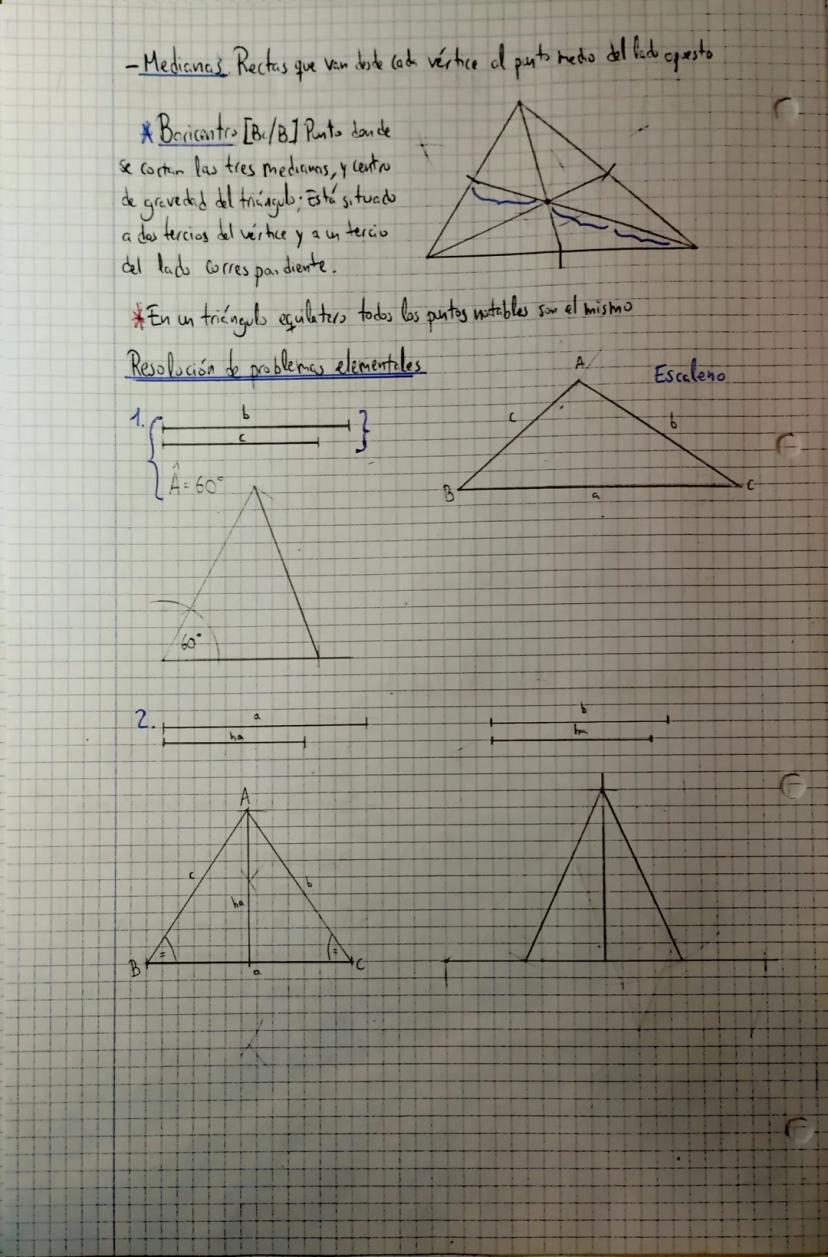 - Medianas. Rectas que van desde cada vértice al punto medio del lado opuesto
* Baricentro [Bc/B] Punto donde
se cortan las tres medianas, y centro
de gravedad del triángulo. Está situado
a dos tercios del vértice y a un tercio
del lado correspondiente.
* En un triángulo equilatero todos los puntos notables son el mismo
Resolución de problemas elementales
Escaleno
A
c
b
B
a
C
1.
b
c
Â = 60°
60°
2.
a
ha
b
A
c
b
ha
B
=
=
C
a